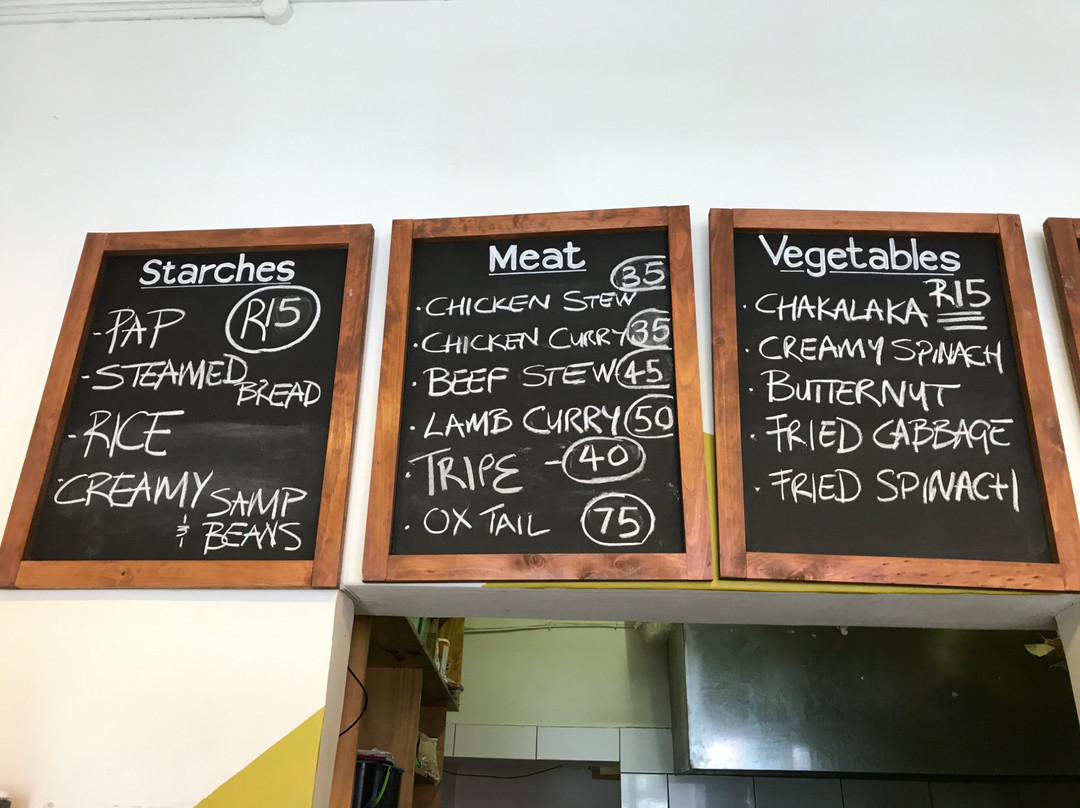 Starches
R15
- PAP
- STEAMED
BREAD
- RICE
· CREAMY SAMP
& BEANS
Meat
· CHICKEN STEW 35
· CHICKEN CURRY 35
· BEEF STEW 45
· LAMB CURRY 50
· TRIPE - 40
· OX TAIL 75
Vegetables
· CHAKALAKA R15
· CREAMY SPINACH
· BUTTERNUT
· FRIED CABBAGE
· FRIED SPINACH